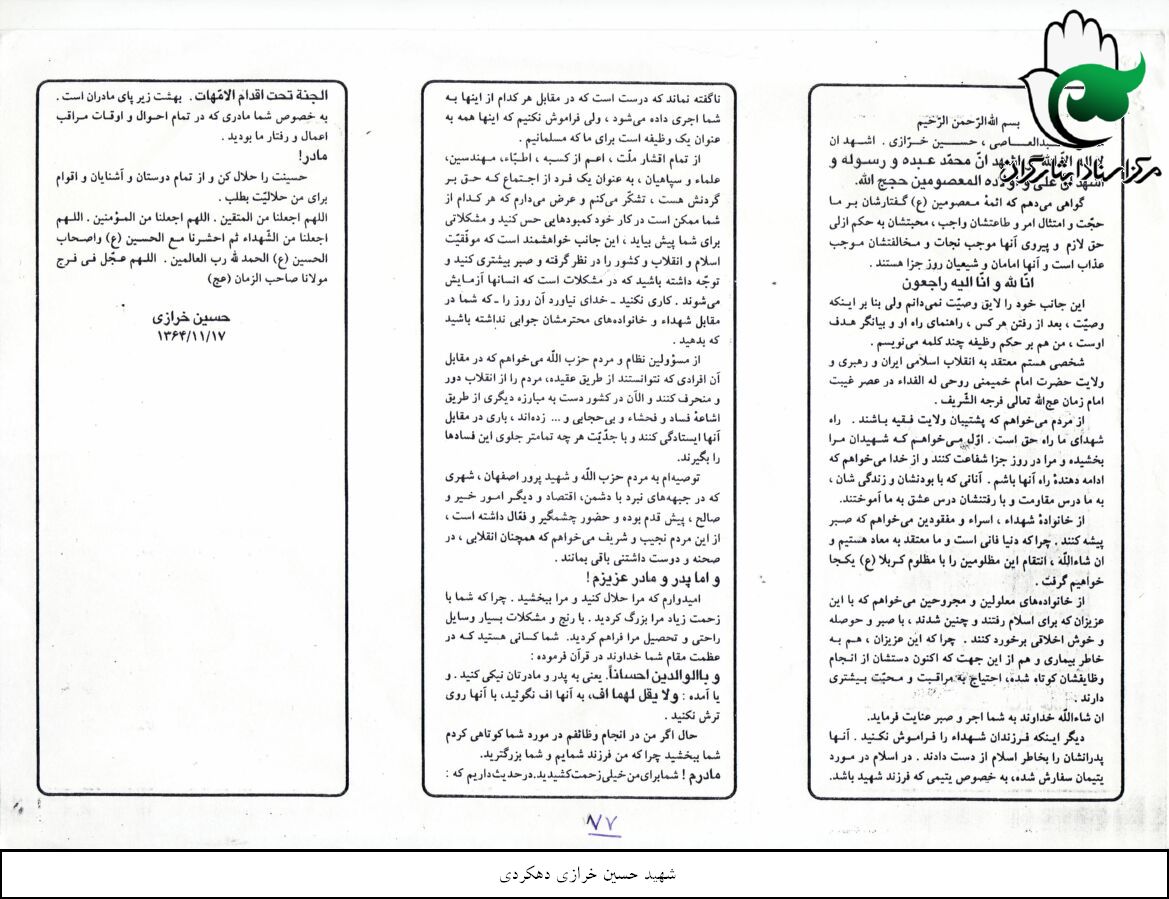 بسم الله الرّحمن الرّحیم
العاصی ، حسـین خـرّازی . اشهـد ان
اشهد انّ محمّد عبده و رسوله و
علی و اولاده المعصومین حجج الله.
گواهی می‌دهم که ائمۀ معصومین (ع) گفتارشان بر ما
حجّت و امتثال امر و طاعتشان واجب ، محبتشان به حکم ازلی
حق لازم و پیروی آنها موجب نجات و مخالفتشان موجب
عذاب است و آنها امامان و شیعیان روز جزا هستند .
انّا لله و انّا الیه راجعون
این جانب خود را لایق وصیّت نمی‌دانم ولی بنا بر اینکه
وصیّت ، بعد از رفتن هر کس ، راهنمای راه او و بیانگر هدف
اوست ، من هم بر حکم وظیفه چند کلمه می‌نویسم .
شخصی هستم معتقد به انقلاب اسلامی ایران و رهبری و
ولایت حضرت امام خمینی روحی له الفداء در عصر غیبت
امام زمان عج‌الله تعالی فرجه الشّریف .
از مردم می‌خواهم که پشتیبان ولایت فـقیه باشند . راه
شهدای ما راه حق است . اوّل می‌خواهم که شهیدان مرا
بخشیده و مرا در روز جزا شفاعت کنند و از خدا می‌خواهم که
ادامه دهندۀ راه آنها باشم . آنانی که با بودنشان و زندگی شان ،
به ما درس مقاومت و با رفتنشان درس عشق به ما آموختند.
از خانوادۀ شهداء ، اسراء و مفقودین می‌خواهم که صبر
پیشه کنند . چرا که دنیا فانی است و ما معتقد به معاد هستیم و
ان شاءاللّه ، انتقام این مظلومین را با مظلوم کربلا (ع) یکجا
خواهیم گرفت .
از خانواده‌های معلولین و مجروحین می‌خواهم که با این
عزیزان که برای اسلام رفتند و چنین شدند ، با صبر و حوصله
و خوش اخلاقی برخورد کنند . چرا که این عزیزان ، هم به
خاطر بیماری و هم از این جهت که اکنون دستشان از انجام
وظایفشان کوتاه شده، احتیاج به مراقبت و محبّت بیشتری
دارند .
ان شاءاللّه خداوند به شما اجر و صبر عنایت فرماید.
دیگر اینکه فرزندان شهداء را فراموش نکنید . آنها
پدرانشان را بخاطر اسلام از دست دادند . در اسلام در مورد
یتیمان سفارش شده، به خصوص یتیمی که فرزند شهید باشد.
ناگفته نماند که درست است که در مقابل هر کدام از اینها به
شما اجری داده می‌شود ، ولی فراموش نکنیم که اینها همه به
عنوان یک وظیفه است برای ما که مسلمانیم .
از تمام اقشار ملّت ، اعم از کسبه ، اطبّاء، مهندسین،
علماء و سپاهیان ، به عنوان یک فرد از اجتماع که حق بر
گردنش هست ، تشکّر می‌کنم و عرض می‌دارم که هر کدام از
شما ممکن است در کار خود کمبودهایی حس کنید و مشکلاتی
برای شما پیش بیاید ، این جانب خواهشمند است که موفّقیّت
اسلام و انقلاب و کشور را در نظر گرفته و صبر بیشتری کنید و
توجّه داشته باشید که در مشکلات است که انسانها آزمایش
می‌شوند . کاری نکنید ـ خدای نیاورد آن روز را ـ که شما در
مقابل شهداء و خانواده‌های محترمشان جوابی نداشته باشید
که بدهید .
از مسؤولین نظام و مردم حزب اللّه می‌خواهم که در مقابل
آن افرادی که نتوانستند از طریق عقیده، مردم را از انقلاب دور
و منحرف کنند و الآن در کشور دست به مبارزه دیگری از طریق
اشاعۀ فساد و فحشاء و بی‌حجابی و ... زده‌اند ، باری در مقابل
آنها ایستادگی کنند و با جدّیّت هر چه تمامتر جلوی این فسادها
را بگیرند.
توصیه‌ام به مردم حزب اللّه و شهید پرور اصفهان ، شهری
که در جبهه‌های نبرد با دشمن، اقتصاد و دیگر امور خیر و
صالح ، پیش قدم بوده و حضور چشمگیر و فعّال داشته است ،
از این مردم نجیب و شریف می‌خواهم که همچنان انقلابی ، در
صحنه و دوست داشتنی باقی بمانند .
و اما پدر و مادر عزیزم !
امیدوارم که مرا حلال کنید و مرا ببخشید . چرا که شما با
زحمت زیاد مرا بزرگ کردید . با رنج و مشکلات بسیار وسایل
راحتی و تحصیل مرا فراهم کردید. شما کسانی هستید که در
عظمت مقام شما خداوند در قرآن فرموده :
و بالوالدین احساناً. یعنی به پدر و مادرتان نیکی کنید . و
یا آمده : ولا یقل لهما اف، به آنها اف نگوئید، با آنها روی
ترش نکنید .
حال اگر من در انجام وظائفم در مورد شما کوتاهی کردم
شما ببخشید چرا که من فرزند شمایم و شما بزرگترید.
مادرم ! شما برای من خیلی زحمت کشیدید. در حدیث داریم که :
الجنة تحت اقدام الامّهات . بهشت زیر پای مادران است .
به خصوص شما مادری که در تمام احوال و اوقات مراقب
اعمال و رفتار ما بودید .
مادر!
حسینت را حلال کن و از تمام دوستان و آشنایان و اقوام
برای من حلالیّت بطلب .
اللهم اجعلنا من المتقین . اللهم اجعلنا من المؤمنین . اللهم
اجعلنا من الشّهداء ثم احشرنا مع الحسین (ع) واصحاب
الحسین (ع) الحمد لله رب العالمین . اللهم عجّل فی فرج
مولانا صاحب الزمان (عج)
حسین خرازی
۱۳۶۴/۱۱/۱۷
۸۷
شهید حسین خرازی دهکردی
مرکز اسناد ایثارگران